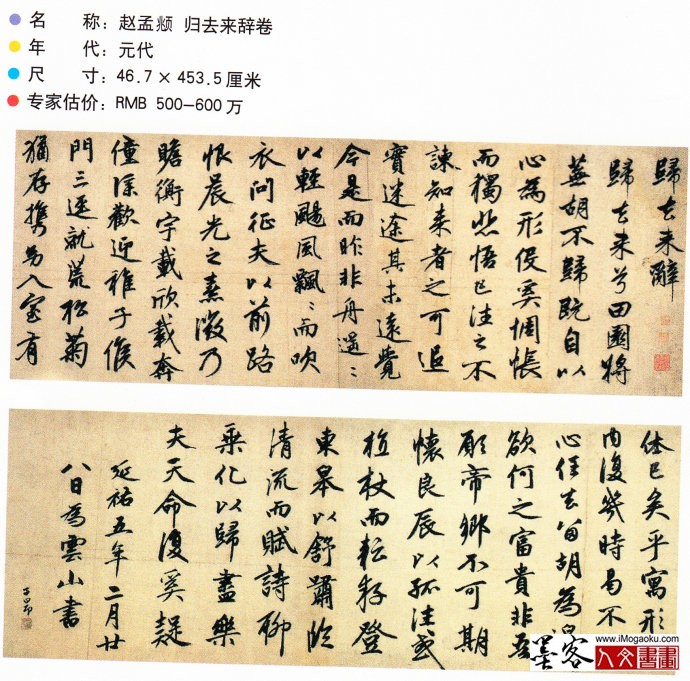 名 称：赵孟頫 归去来辞卷
年 代：元代
尺 寸：46.7×453.5厘米
专家估价：RMB 500—600万
歸去来辭
歸去来兮田園將
蕪胡不歸既自以
心為形役奚惆悵
而獨悲悟已往之不
諫知来者之可追
實迷途其未遠覺
今是而昨非舟遥〻
以輕颺風飄〻而吹
衣問征夫以前路
恨晨光之熹微乃
瞻衡宇載欣載奔
僮僕歡迎稚子候
門三逕就荒松菊
猶存攜幼入室有
休已矣乎寓形
内復幾時曷不
心任去留胡為
欲何之富貴非吾
願帝鄉不可期
懷良辰以孤往或
植杖而耘耔登
東皋以舒嘯臨
清流而賦詩聊
乘化以歸盡樂
夫天命復奚疑
延祐五年二月廿
八日為雲山書
子昂
www.iMogaoku.com
墨客人文書畫